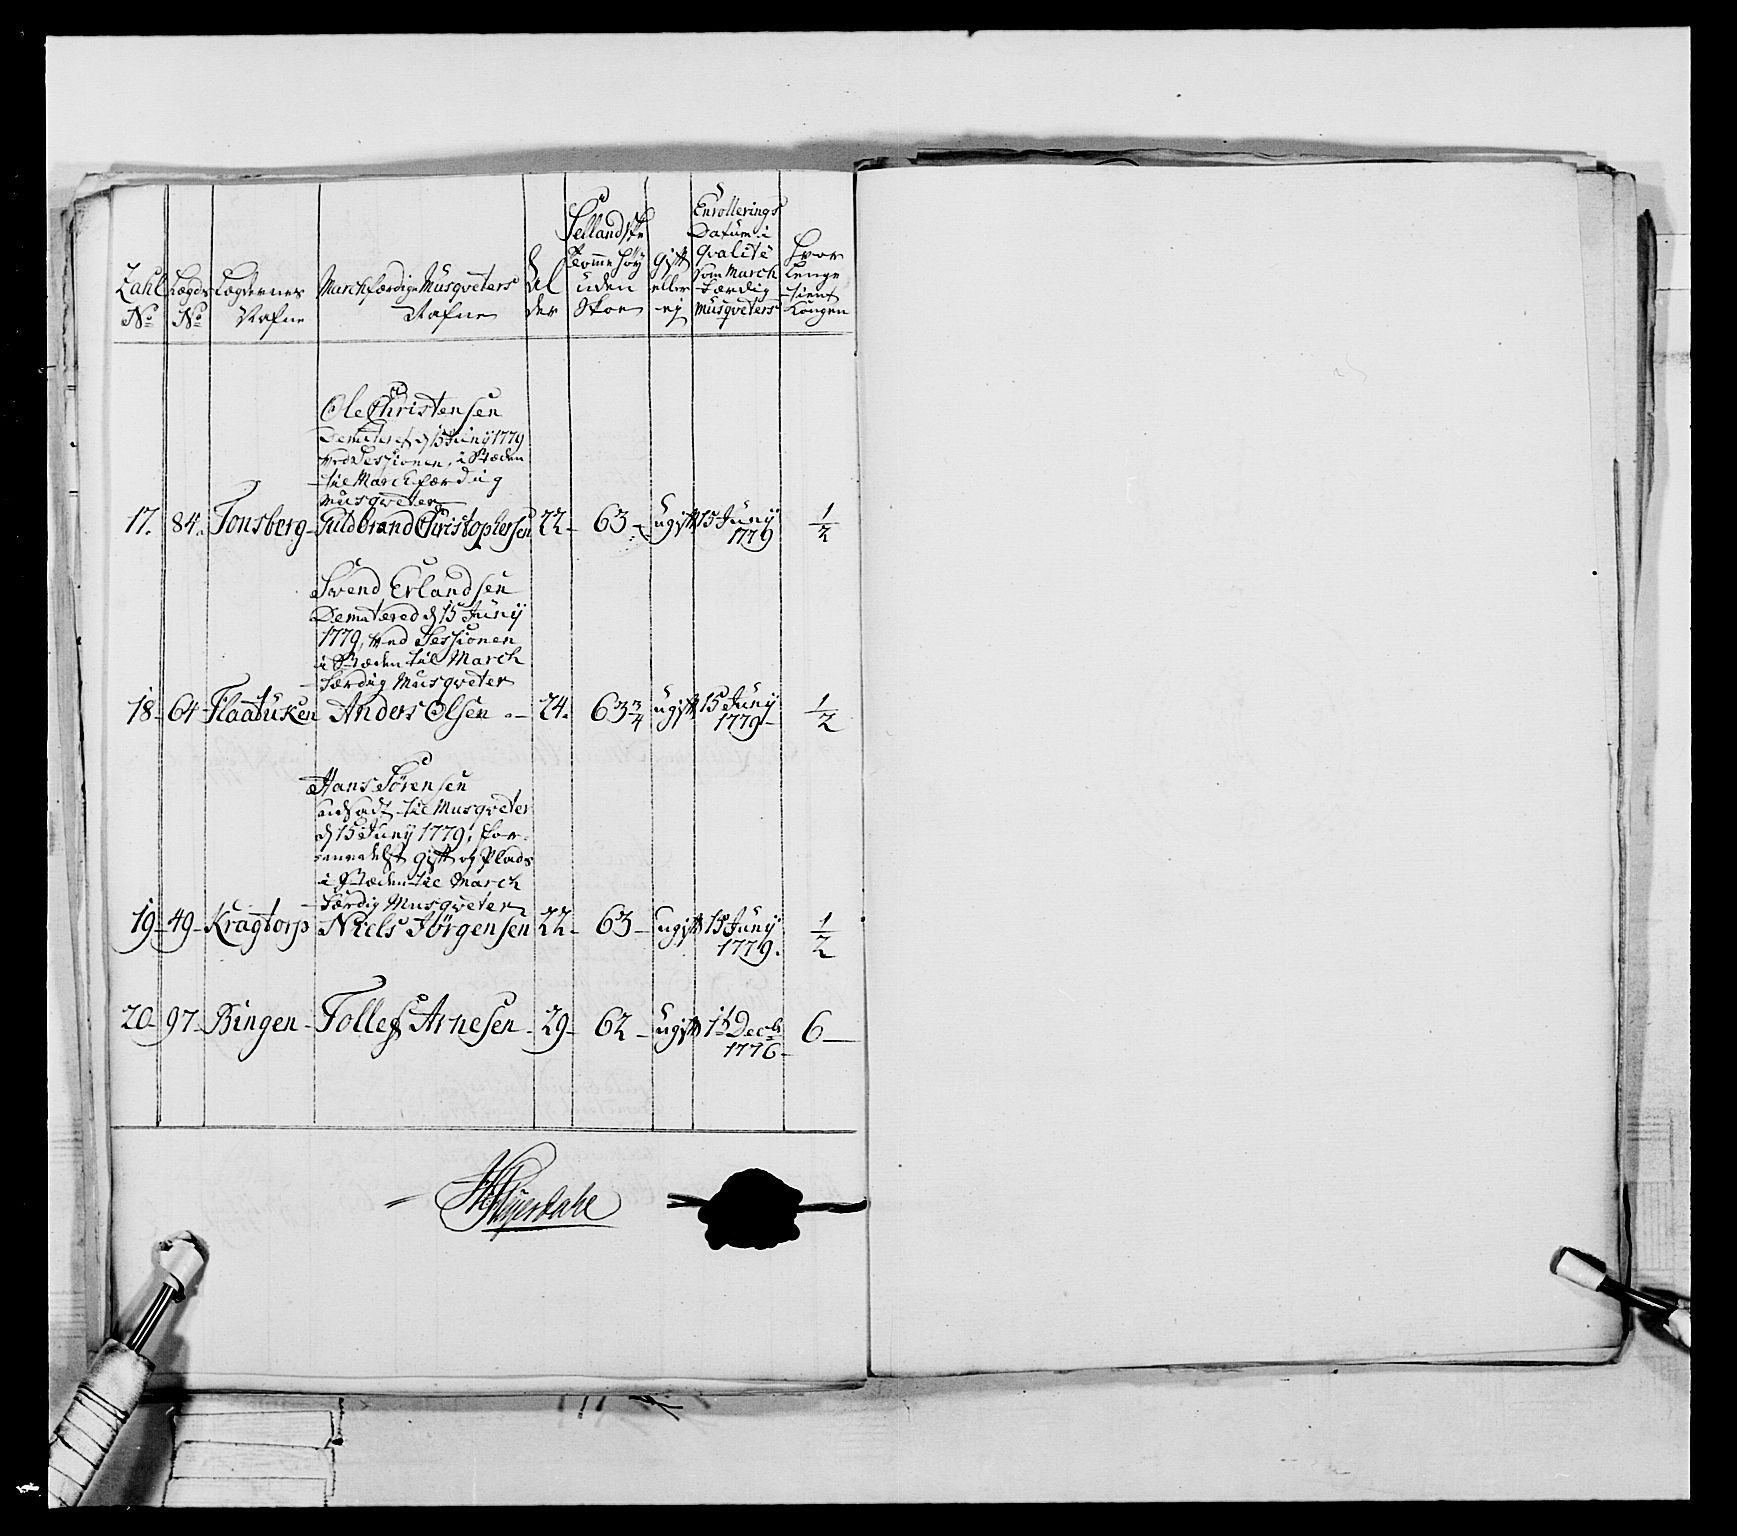 Zahl No
Lægds No
Lægdernes Nafne
Marchfærdige Musqveters Nafne
Alder
Sellandske Tomme höy uden Skoe
gift eller ej
Enrollerings Datum i qvalité som March færdig Musqveters
Hvor lenge tient Kongen
Ole Christensen
Demitteret d 15 Junij 1779
ved Sessionen, i Stæden
til March færdig
Musqveter
17. 84. Tonsberg Guldbrand Christophersen 22 63 ugift 15 Junij 1779 1/2
Svend Erlandsen
Demittered d 15 Junij
1779, ved Sessionen
i Stæden til March
færdig Musqveter
18 64 Flaatuken Anders Olsen 24. 63 3/4 ugift 15 Junij 1779 1/2
Hans Sörensen
andsadt til Musqveter
d 15 Junij 1779, for-
gift og Plads
i Stæden til March
færdig Musqveter
19 49 Kragtorp Niels Jörgensen 22 63 ugift 15 Junij 1779. 1/2
20 97 Bingen Tollef Arnesen 29 62 ugift 13 Decbr 1776 6